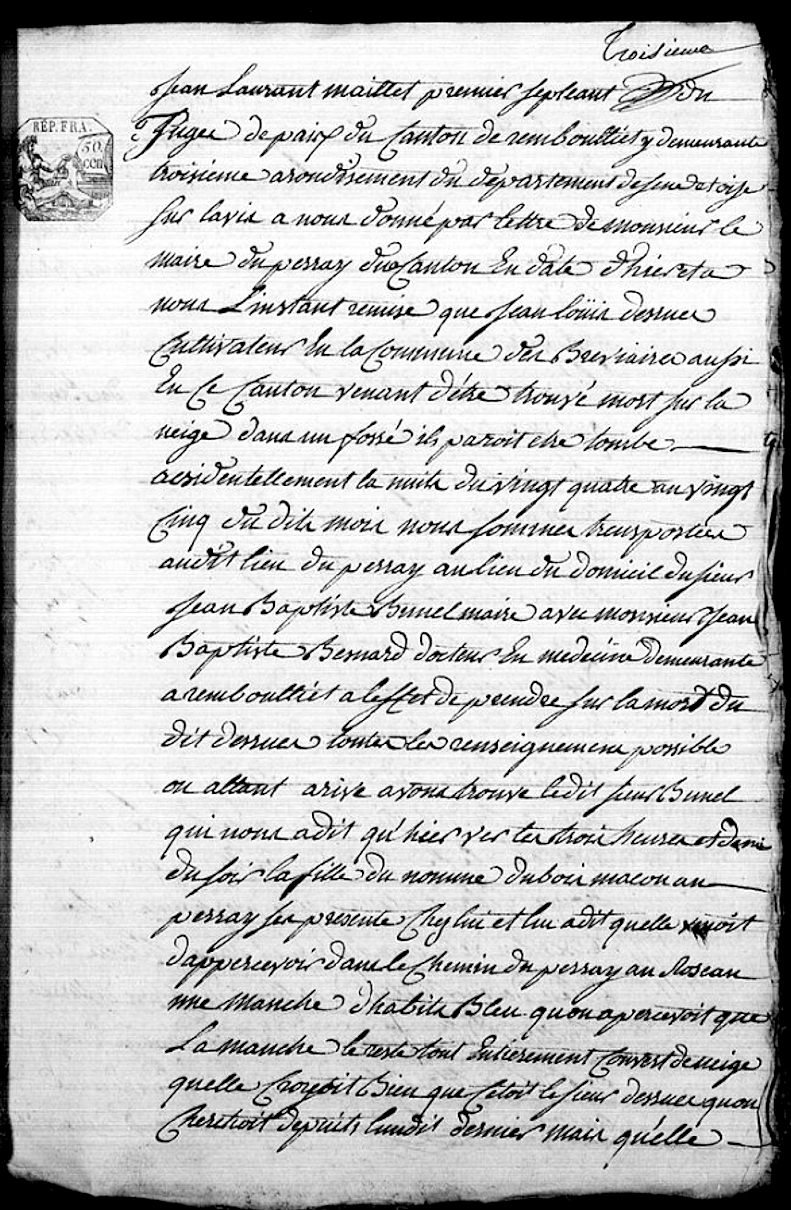 Troisieme
Jean Laurant maillet premier supleant du
REP. FRA.
50 cen
Juge de paix du Canton de remboulliet y demeurante
troisième arondissement du département de seine et oise
sur lavis a nous donné par lettre de monsieur le
maire du perray du Canton En date d'hier et a
nous L'instant remise que Jean loüis desrues
Cultivateur En la Commune des Breviaires aussi
En Ce Canton venant d'être trouvé mort sur la
neige dans un fossé ils paroit etre tombe
acsidentellement la nuite du vingt quatre au vingt
Cinq du dite mois nous sommes transportes
audit lieu du perray au lieu du domicil du sieur
Jean Baptiste Bunel maire avec monsieur Jean
Baptiste Besnard docteur En medecine demeurante
a remboulliet a leffet de prendre sur la mort du
dit desrues toutes les renseignemens possible
ou attant arive avons trouve ledit sieur Bunel
qui nous adit qu'hier ver les trois heures et demi
du soir la fille du nomme dubois macon au
perray ses presente Chez lui et lui adit quelle venoit
dappercevoir dans le Chemin du perray au Roseau
une manche d'habite Bleu quon apercevoit que
La manche le reste tout Entierement Couvert de neige
quelle Croyoit Bien que Cétoit le sieur desrues quon
Cherchoit depuits lundit dernier mais quélle